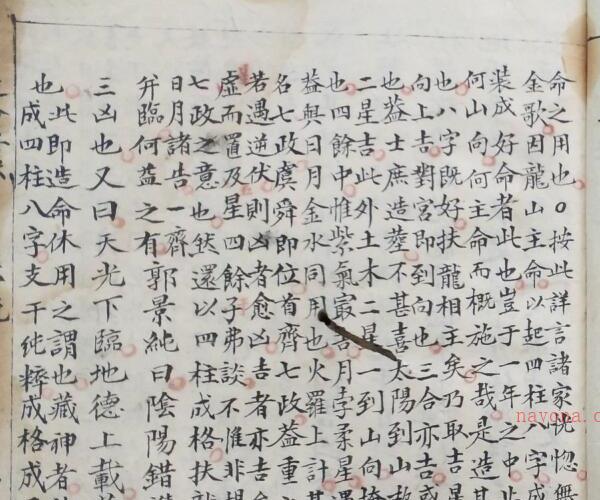 命之用也○按此詳言諸家恍惚無
金歌因龍山主命以起四柱八字成
裝成好命者此也豈于一年之中
何山向何主命而概施之哉是造
也八字既好扶龍相主矣乃取吉星
向上吉對宮即到向也三合亦吉
也蓋士庶造塟不甚喜太陽到山
二星吉此外土木二星一到山向
也四餘中惟紫氣最吉月孛柔星遇
益與日月金水同用也火羅上計
名七政虞舜即位首齊七政蓋重
若遇逆伏則凶者愈凶吉者亦吉
虛而置及星四餘子弗談不惟非
七政之意也然還以四柱成格扶龍
日月諸吉一齊
弁臨何益之有郭景純曰陰陽錯
三凶也又曰天光下臨地德上載
也此即造命休用之謂也藏神
也成四柱八字支干純粹成格成
nayona.c